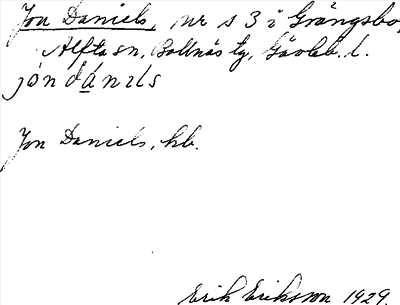 Jon Daniels, nr s 3 i Grängsbo,
Alfta sn, Bollnäs tg, Gävleb. l.
jón dánils
Jon Daniels, hb.
Erik Eriksson 1929.